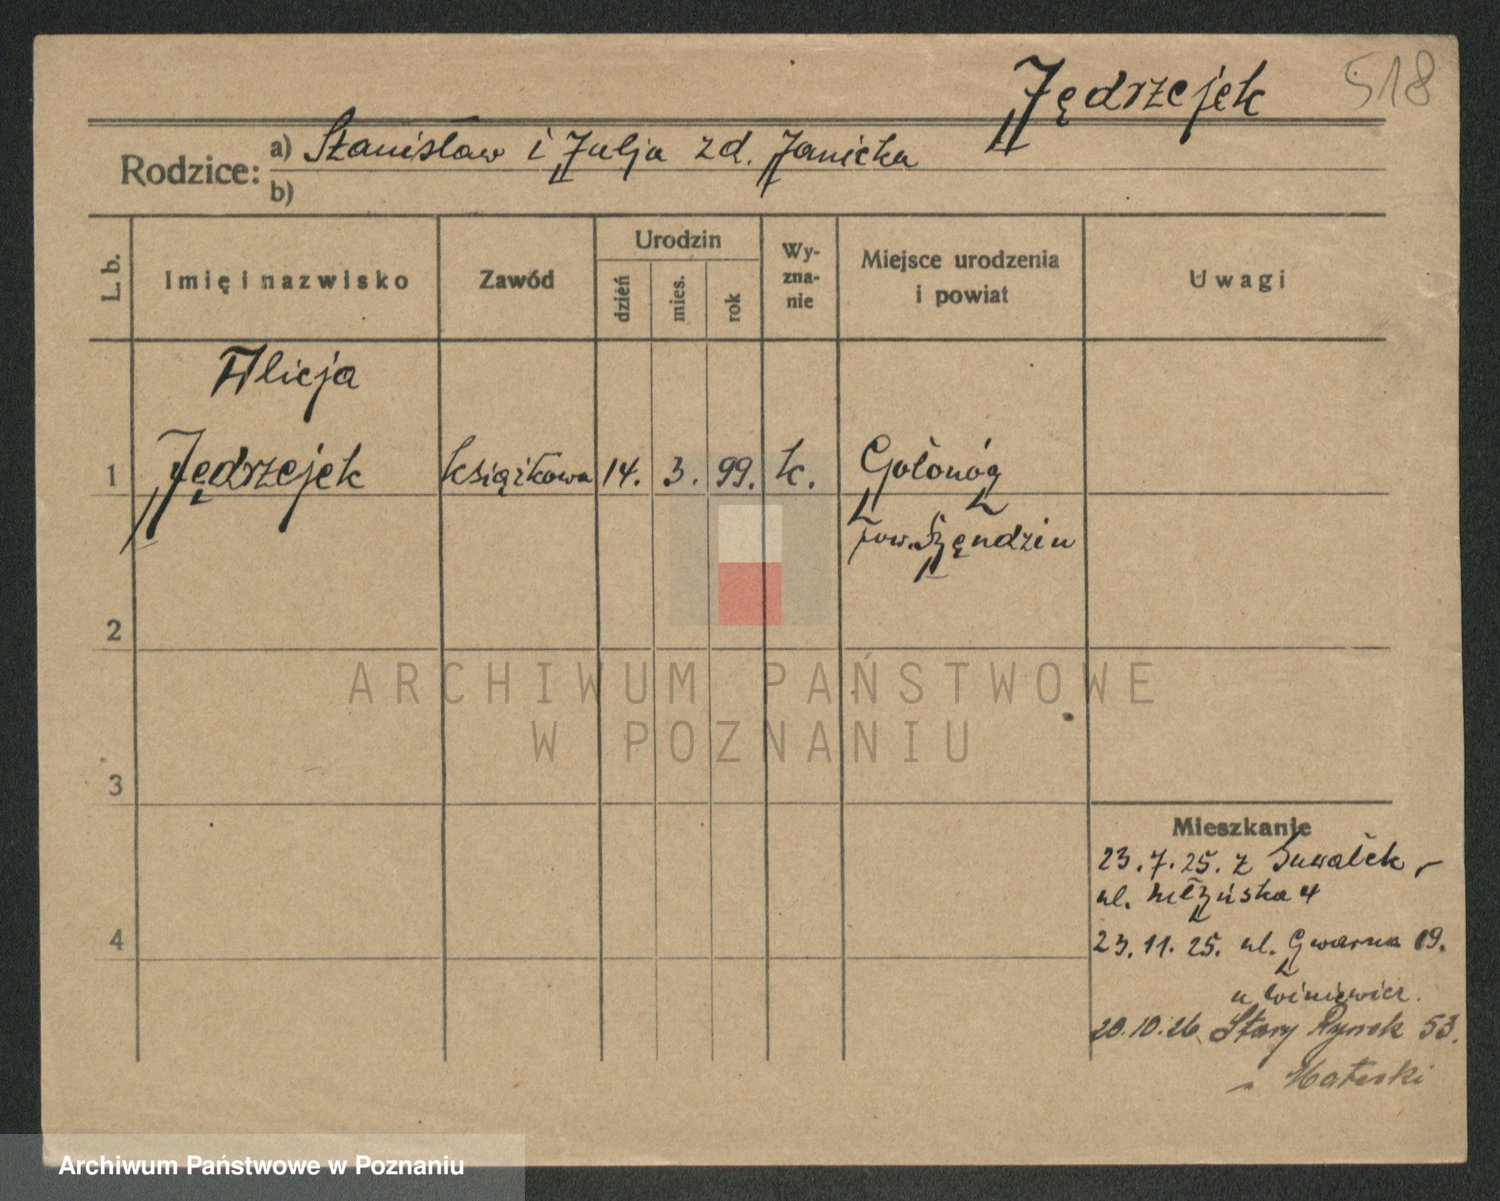 Jędrzejek 518
Rodzice: a) Stanisław i Julja zd. Janicka
b)
L. b.
Imię i nazwisko
Zawód
Urodzin
dzień
mies.
rok
Wy-
zna-
nie
Miejsce urodzenia
i powiat
Uwagi
Alicja
1 Jędrzejek książkowa 14. 3. 99. k. Gołonóg
pow. Będzin
2
3
4
Mieszkanie
23.7.25. z Suwałek
ul. 4
23.11.25. ul. Gwarna 19.
u
20.10.26 Stary Rynek 53.
ARCHIWUM PAŃSTWOWE
W POZNANIU
Archiwum Państwowe w Poznaniu